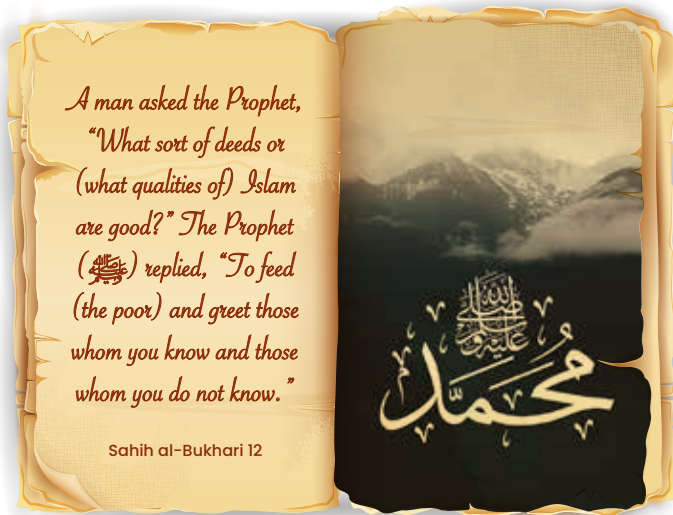 A man asked the Prophet,
“What sort of deeds or
(what qualities of) Islam
are good?” The Prophet
(ﷺ) replied, “To feed
(the poor) and greet those
whom you know and those
whom you do not know.”
Sahih al-Bukhari 12
صلى الله عليه وسلم
محمد